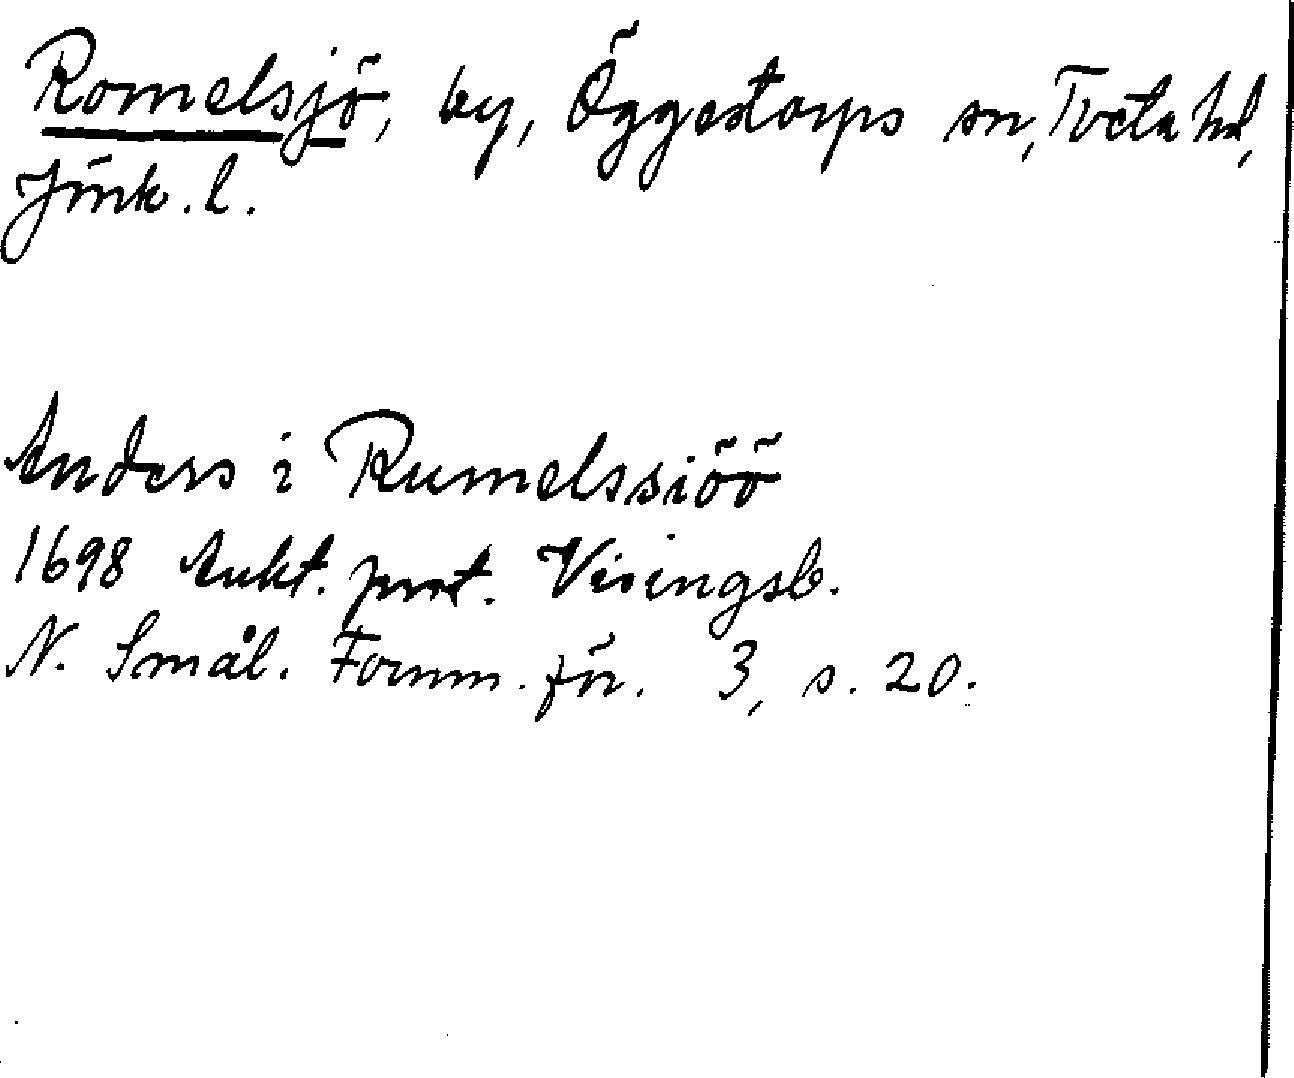 Romelsjö, by, Öggestorps sn, Tveta hd,
Jönk. l.
Anders i Rumelssiöö
1698 Aukt. prot. Visingsb.
N. Smål. Fornm.för. 3, s. 20.